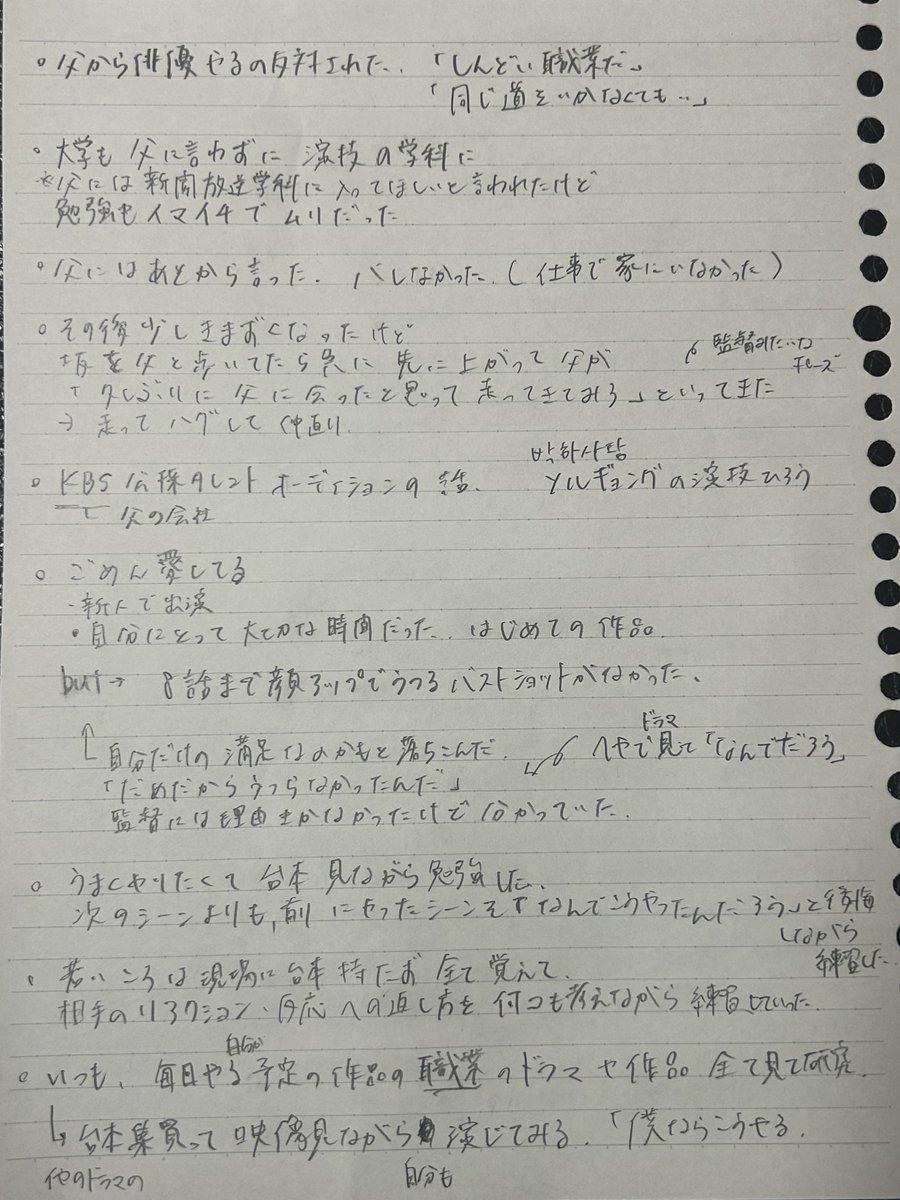 。父から俳優やるの反対された.「しんどい職業だ」
「同じ道をいかなくても‥」
。大学も父に言わずに 演技の学科に
*父には新聞放送学科に入ってほしいと言われたけど
勉強もイマイチでムリだった
。父にはあとから言った. バレなかった.(仕事で家にいなかった)
。その後少しきまずくなったけど
坂を父と歩いてたら 先に上がって父が
監督みたいな
ポーズ
「久しぶりに父に会ったと思って走ってきてみろ」といってきた
→ 走ってハグして仲直り
。KBS公採タレントオーディションの話.
박하사탕
ソルギョングの演技ひろう
父の会社
。ごめん愛してる
-新人で出演
・自分にとって大切な時間だった. はじめての作品.
but→ 8話まで顔アップでうつるバストショットがなかった.
↑自分だけの満足なのかもと落ちこんだ.
ドラマ
へやで見て「なんでだろう」
「だめだからうつらなかったんだ」
監督には理由きかなかったけど分かっていた.
。うまくやりたくて台本見ながら勉強した.
次のシーンよりも,前にやったシーンを「なんでこうやったんだろう」と後悔
しながら
練習した.
・若いころは現場に台本持たず全て覚えて.
相手のリアクション・反応への返し方を何コも考えながら練習していた.
自分が
。いつも、毎日やる予定の作品の職業のドラマや作品全て見て研究.
↳台本集買って映像見ながら演じてみる.「僕ならこうやる.
他のドラマの
自分も